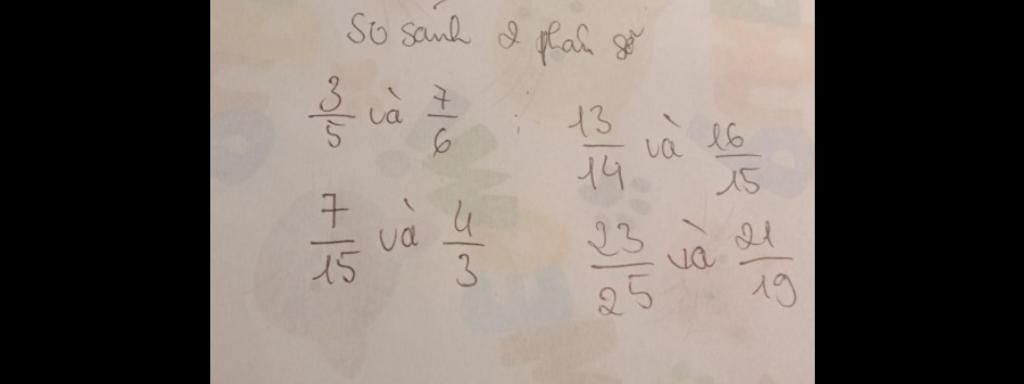 So sánh 2 phân số
3/5 và 7/6 ; 13/14 và 16/15
7/15 và 4/3 23/25 và 21/19